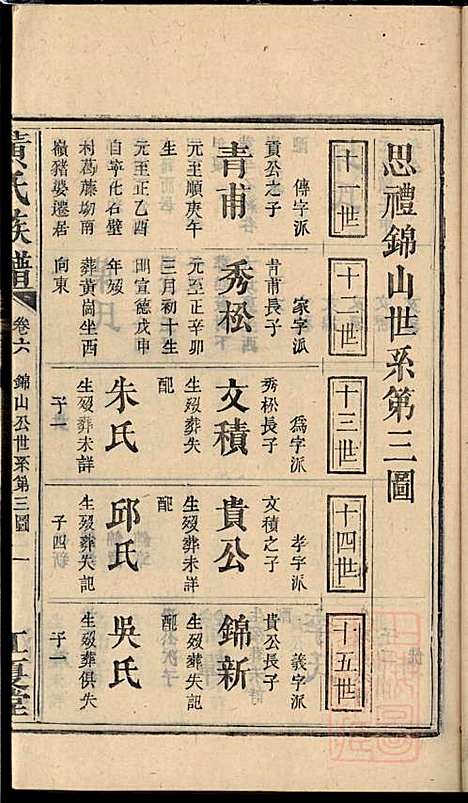 思禮錦山世系第三圖
十一世
傳字派
貢公之子
青甫
元至順庚午
生
元至正乙酉
自寧化石壁
利葛藤坳甫
嶺豬婆遷居
十二世
家字派
青甫長子
秀松
元至正辛卯
三月初十生
明宣德戊申
年歿
葬黃崗坐酉
向東
十三世
爲字派
秀松長子
文積
生歿葬失
配
朱氏
生歿葬未詳
子一
十四世
孝字派
文積之子
貴公
生歿葬未詳
配
邱氏
生歿葬失記
子四新
十五世
義字派
貴公長子
錦新
生歿葬失記
配
吳氏
生歿葬俱失
子一
黃氏族譜
卷六
錦山公世系第三圖
一
江夏堂